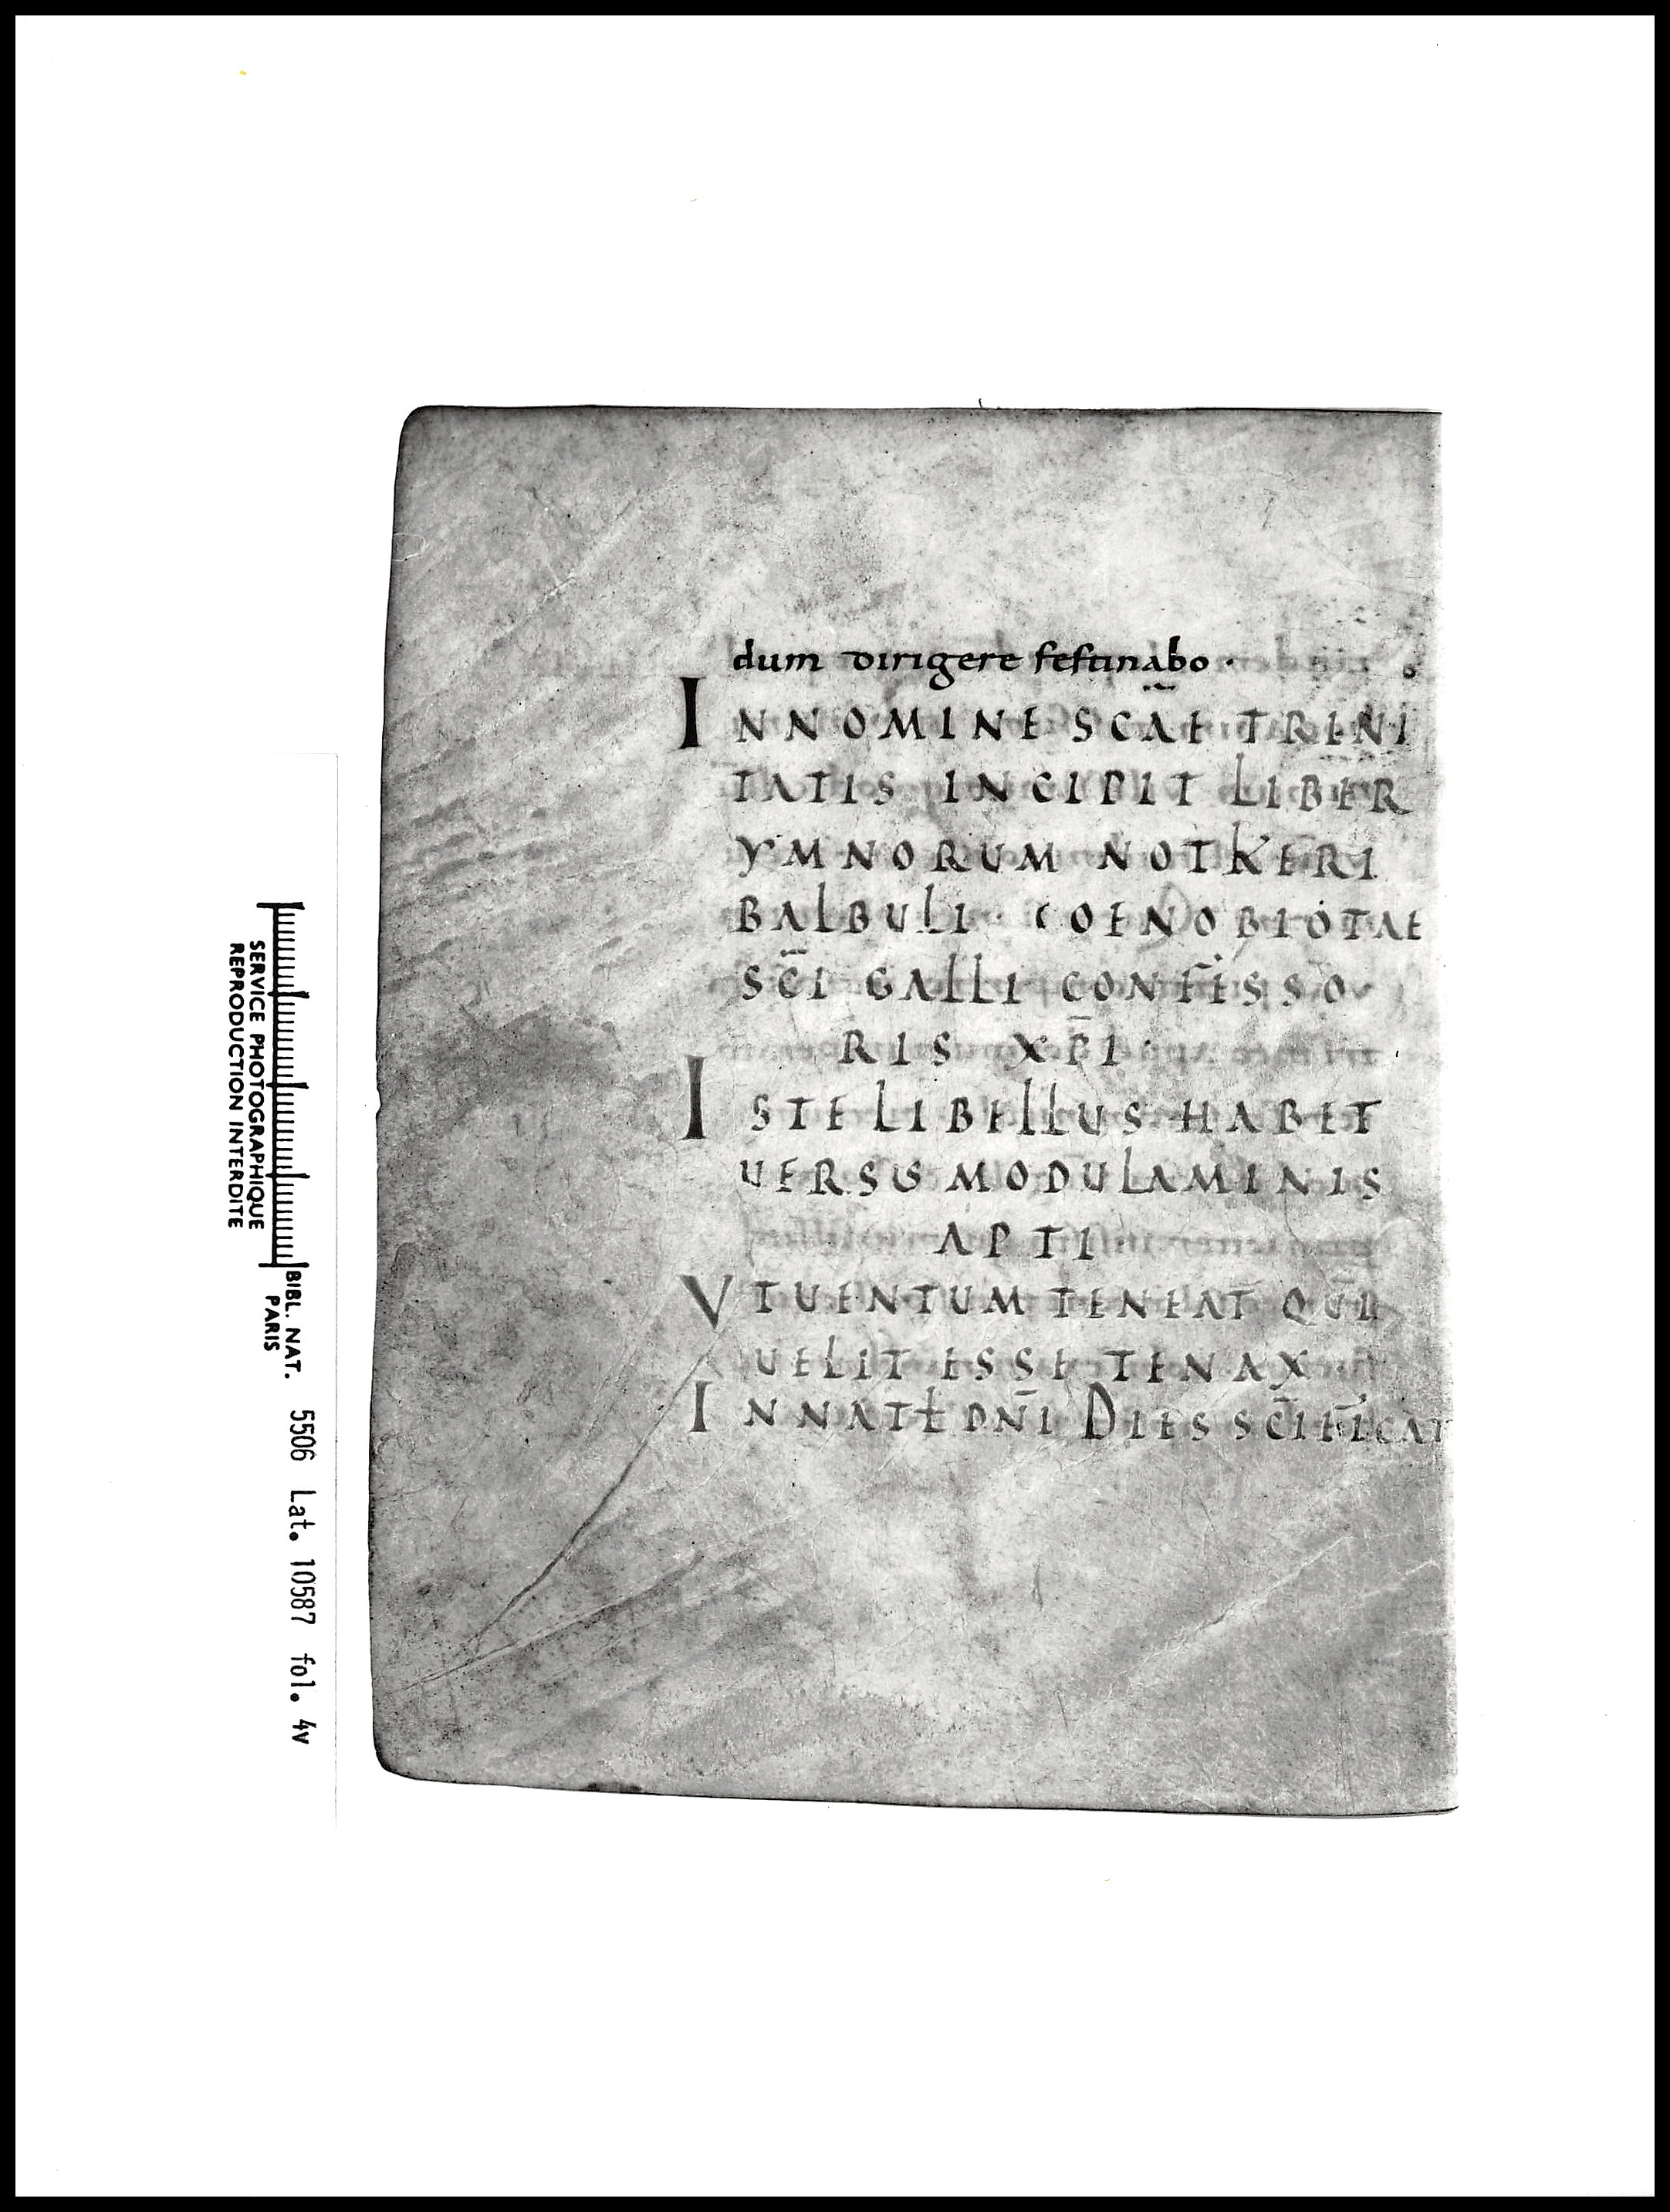 dum dirigere festinabo ·
INNOMINE SC̄AE TRINI
TATIS INCIPIT LIBER
YMNORUM NOTKERI
BALBULI · COENOBIOTAE
SC̄I GALLI CONFESSO
RIS XP̄I ·
ISTE LIBELLUS HABET
UERSUS MODULAMINIS
APTI
VTUENTUM TENEAT QUI
UELIT ESSE TENAX
INNATƗ DN̄I DIES SC̄IFICAT
SERVICE PHOTOGRAPHIQUE
REPRODUCTION INTERDITE
BIBL. NAT.
PARIS
5506 Lat. 10587 fol. 4v